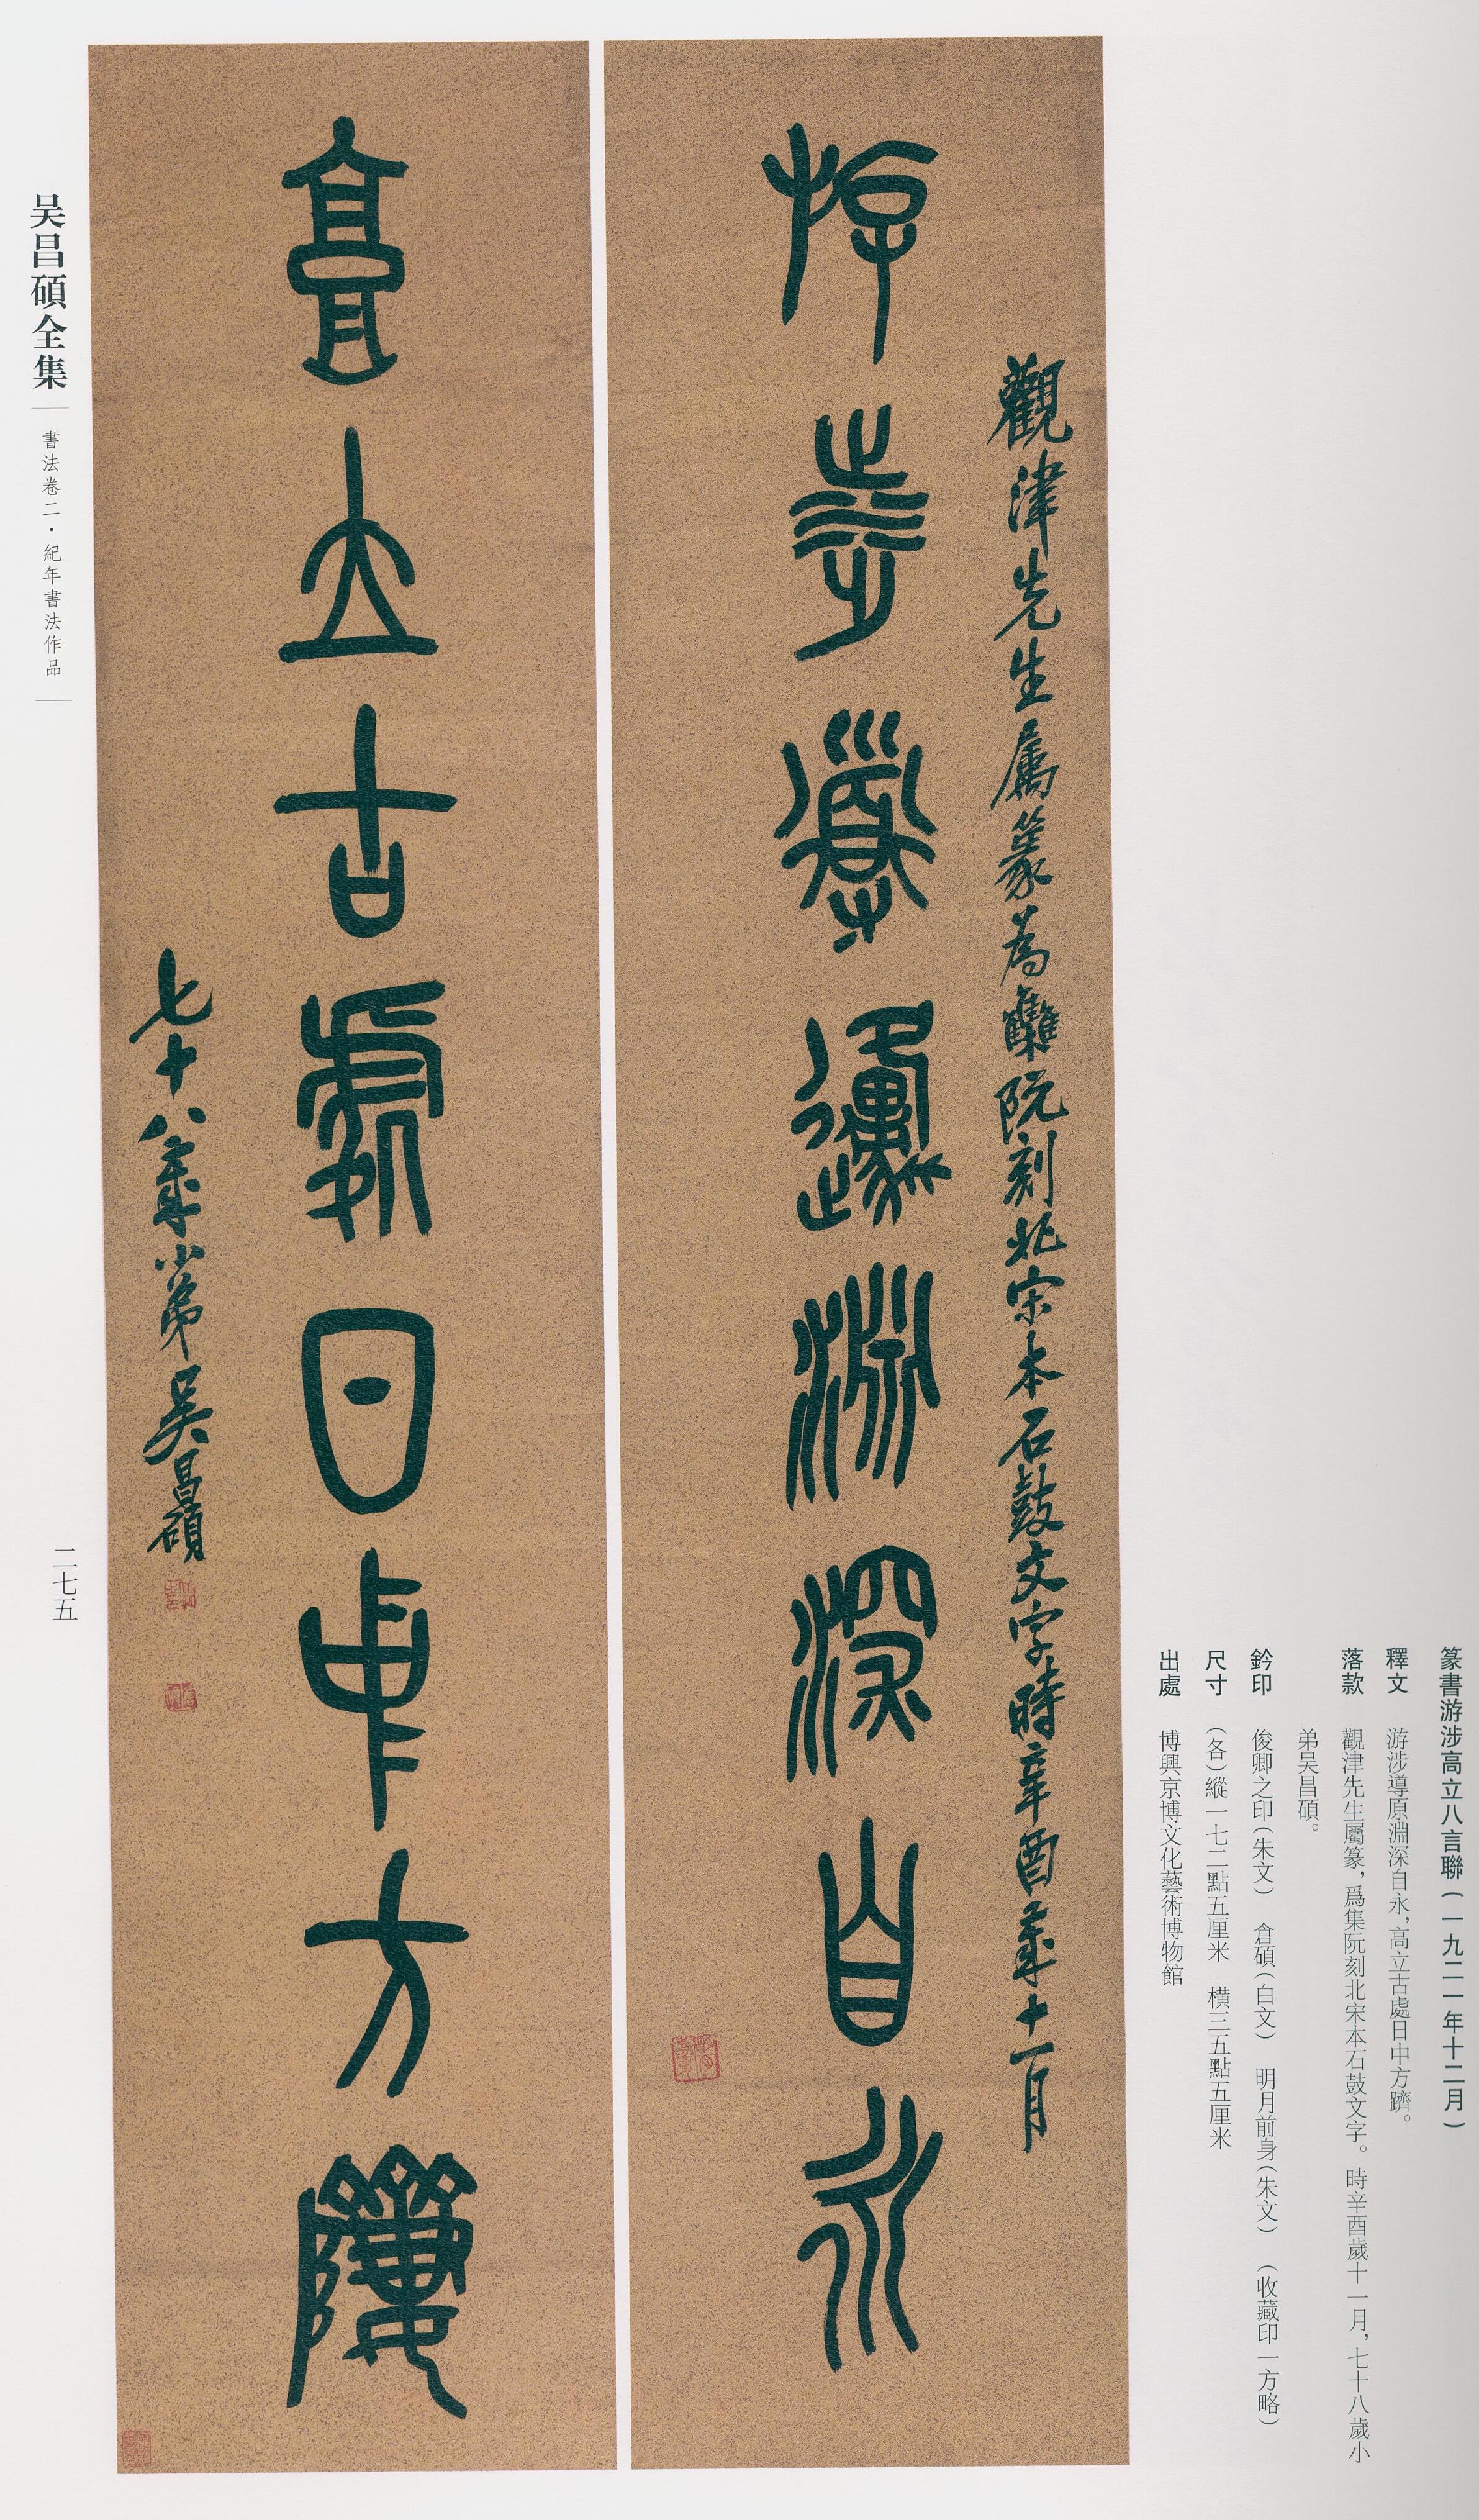 篆書游涉高立八言聯(一九二一年十二月)
釋文 游涉導原淵深自永,高立古處日中方躋。
落款 觀津先生屬篆,爲集阮刻北宋本石鼓文字。時辛酉歲十一月,七十八歲小
弟吴昌碩。
鈐印 俊卿之印(朱文) 倉碩(白文) 明月前身(朱文) (收藏印一方略)
尺寸 (各)縱一七二點五厘米 橫三五點五厘米
出處 博興京博文化藝術博物館
觀津先生屬篆為集阮刻北宋本石鼓文字時辛酉歲十一月
游涉導原淵深自永
高立古處日中方躋
七十八歲小弟吴昌碩
吴昌碩全集
書法卷二·紀年書法作品
二七五